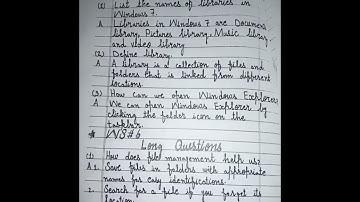 (1) List the names of libraries in
Windows 7.
A Libraries in Windows 7 are Document
library, Pictures library, Music library
and video library
(2) Define library.
A A library is a collection of files and
folders that is linked from different
locations.
(3) How can we open Windows Explorer
A We can open Windows Explorer by
clicking the folder icon on the
taskbar.
# W/S # 6
Long Questions
(1) How does file management help us?
A 1. Save files in folders with appropriate
names for easy identifications.
2. Search for a file if you forget its
location.